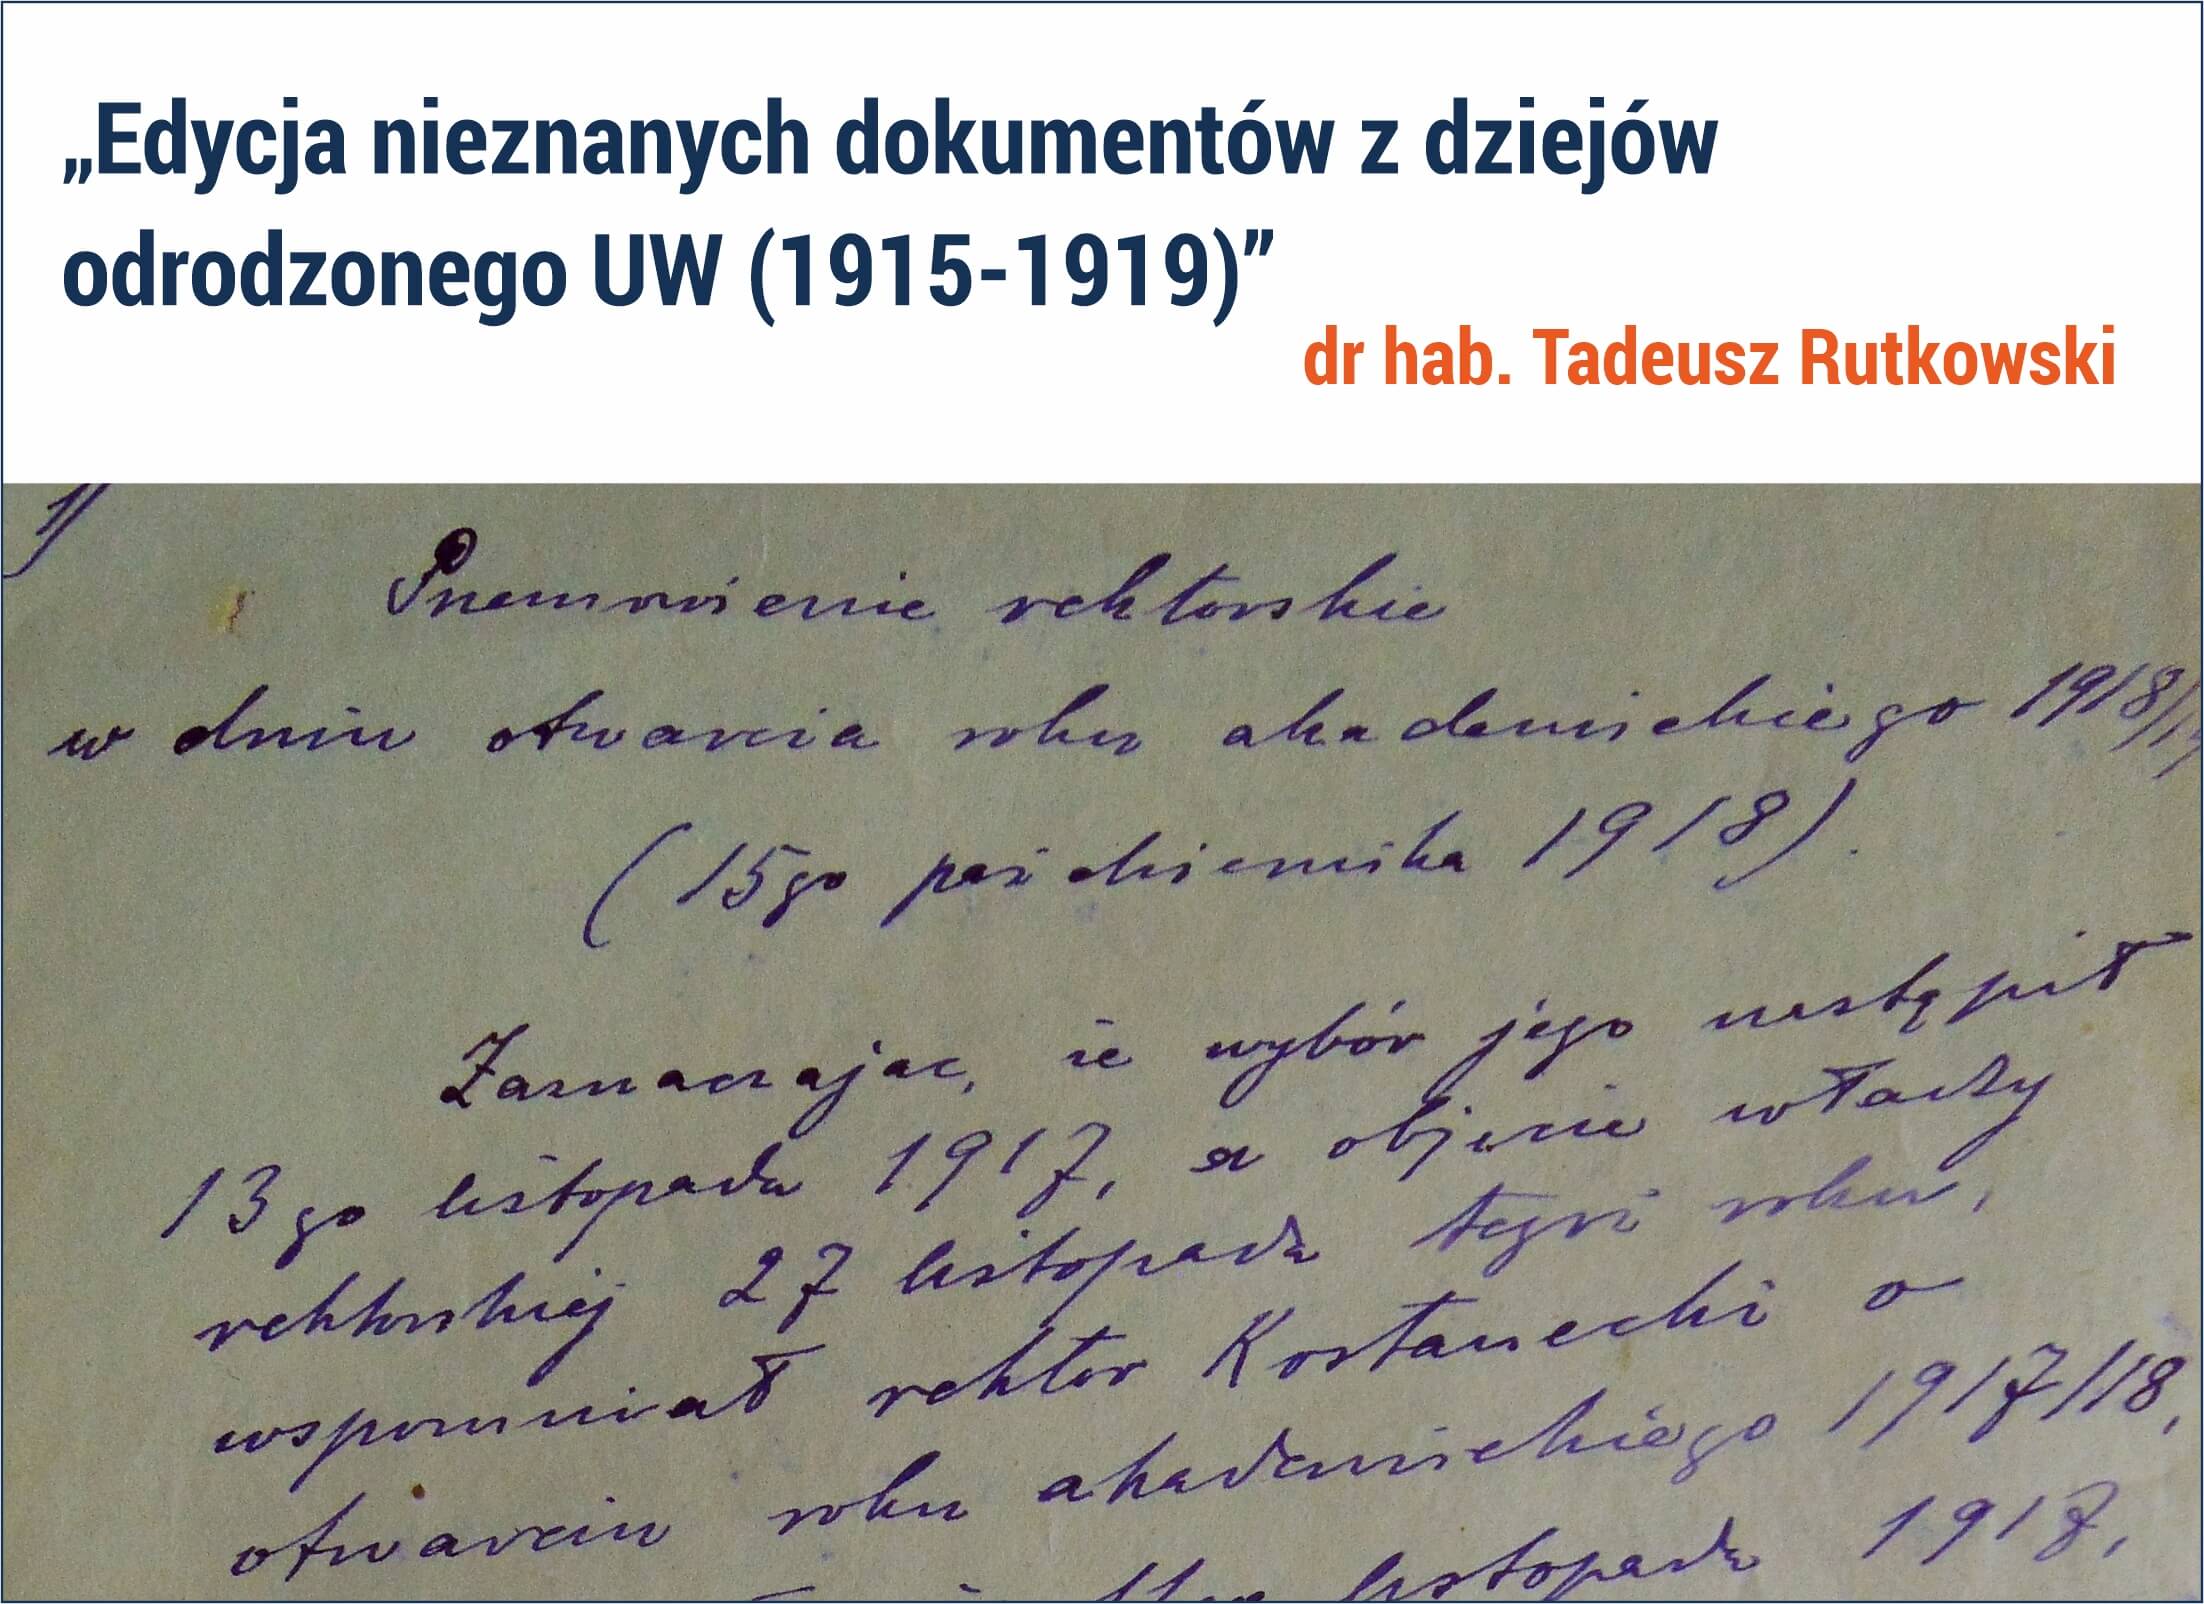 „Edycja nieznanych dokumentów z dziejów
odrodzonego UW (1915-1919)”
dr hab. Tadeusz Rutkowski
1)
Przemówienie rektorskie
w dniu otwarcia roku akademickiego 1918/19
(15go października 1918).
Zaznaczając, że wybór jego nastąpił
13go listopada 1917, a objęcie władzy
rektorskiej 27 listopada tegoż roku,
wspomniał rektor Kostanecki o
otwarciu roku akademickiego 1917/18,
listopada 1917,